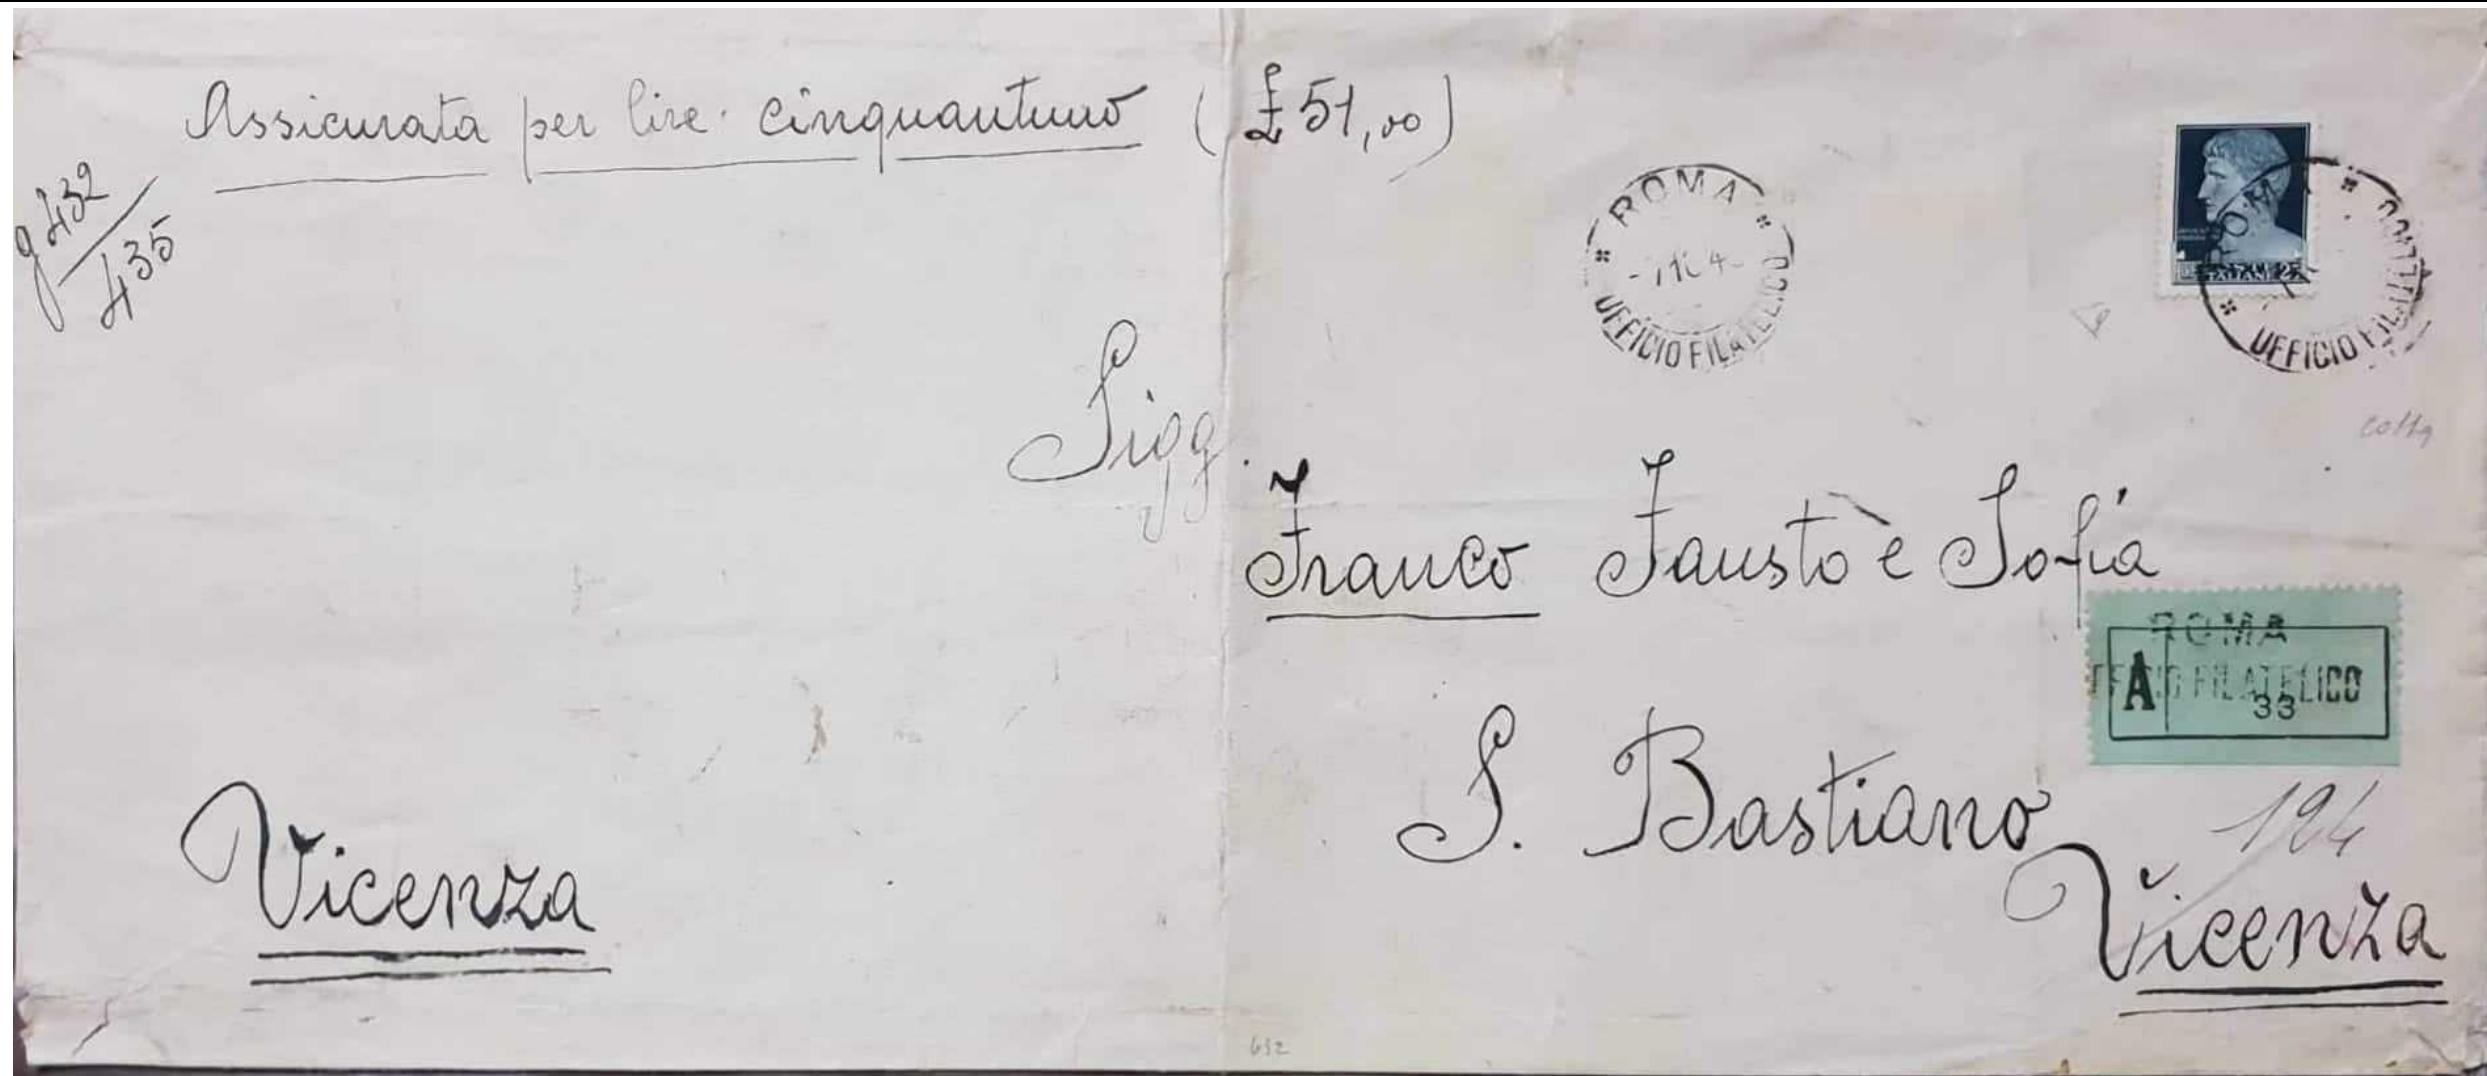 Assicurata per lire cinquantuno (£ 51,00)
g 432
435
ROMA
UFFICIO FILATELICO
ROMA
UFFICIO FILATELICO
Sigg.
Franco Fausto e Sofia
ROMA
FFICIO FILATELICO
A
33
S. Bastiano
194
Vicenza
Vicenza
632